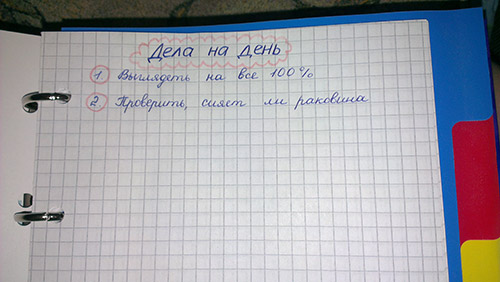 Дела на день
1. Выглядеть на все 100%
2. Проверить, сияет ли раковина